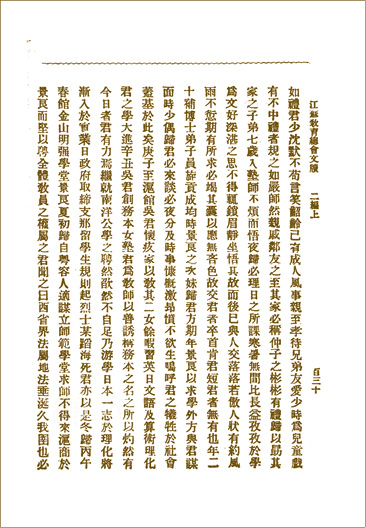 江蘇敎育總會文牘　二編上　百三十
如禮君少沈默不苟言笑齠齡已有成人風事親至孝待兄弟友愛少時爲兒童戲
有不中禮者規之如嚴師然親戚鄰友之至其家必稱仲子之彬彬有禮歸以勗其
家之子弟七歲入塾師不煩而悟夜歸必理日之所課寒暑無間比長益孜孜於學
爲文好深湛之思不得輒鎖眉靜坐悟其故而後已與人交落落若傲人狀有約風
雨不愆期有所求必竭其囊以應無吝色故交君者卒首肯君短君者無有也年二
十補博士弟子員旋貢成均時景良之次妹歸君方期年景良以求學外方與君謀
面時少偶歸君必來談必夜分及時事慷慨激昂憤不欲生嗚呼君之犧牲於社會
蓋基於此矣庚子至滬館吳君懷疚家以敎其二女餘暇習英日文語及算術理化
君之學大進辛丑吳君創務本女塾君爲敎師以善誘稱務本之名之所以灼然有
今日者君有力焉繼就南洋公學之聘然欿然不自足乃游學日本一志於理化將
漸入於實業日政府取締支那留學生規則起烈士某蹈海死君亦以是冬歸丙午
春館金山明强學堂景良夏初歸自粤容人適謀立師範學堂求師不得來滬商於
景良而堅以聘全體敎員之權屬之君聞之曰西省界法屬地法垂涎久我圉也必